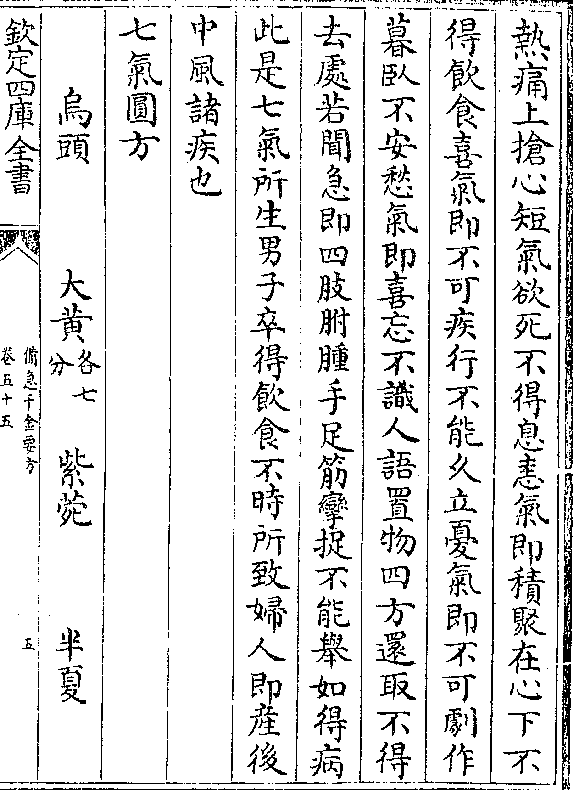 熱痛上搶心短氣欲死不得息恚氣即積聚在心下不
得飲食喜氣即不可疾行不能久立憂氣即不可劇作
暮臥不安愁氣即喜忘不識人語置物四方還取不得
去處若聞急即四肢胕腫手足筋攣捉不能舉如得病
此是七氣所生男子卒得飲食不時所致婦人即產後
中風諸疾也
七氣圓方
烏頭 大黃各七分 紫菀 半夏
欽定四庫全書
備急千金要方
卷五十五
五